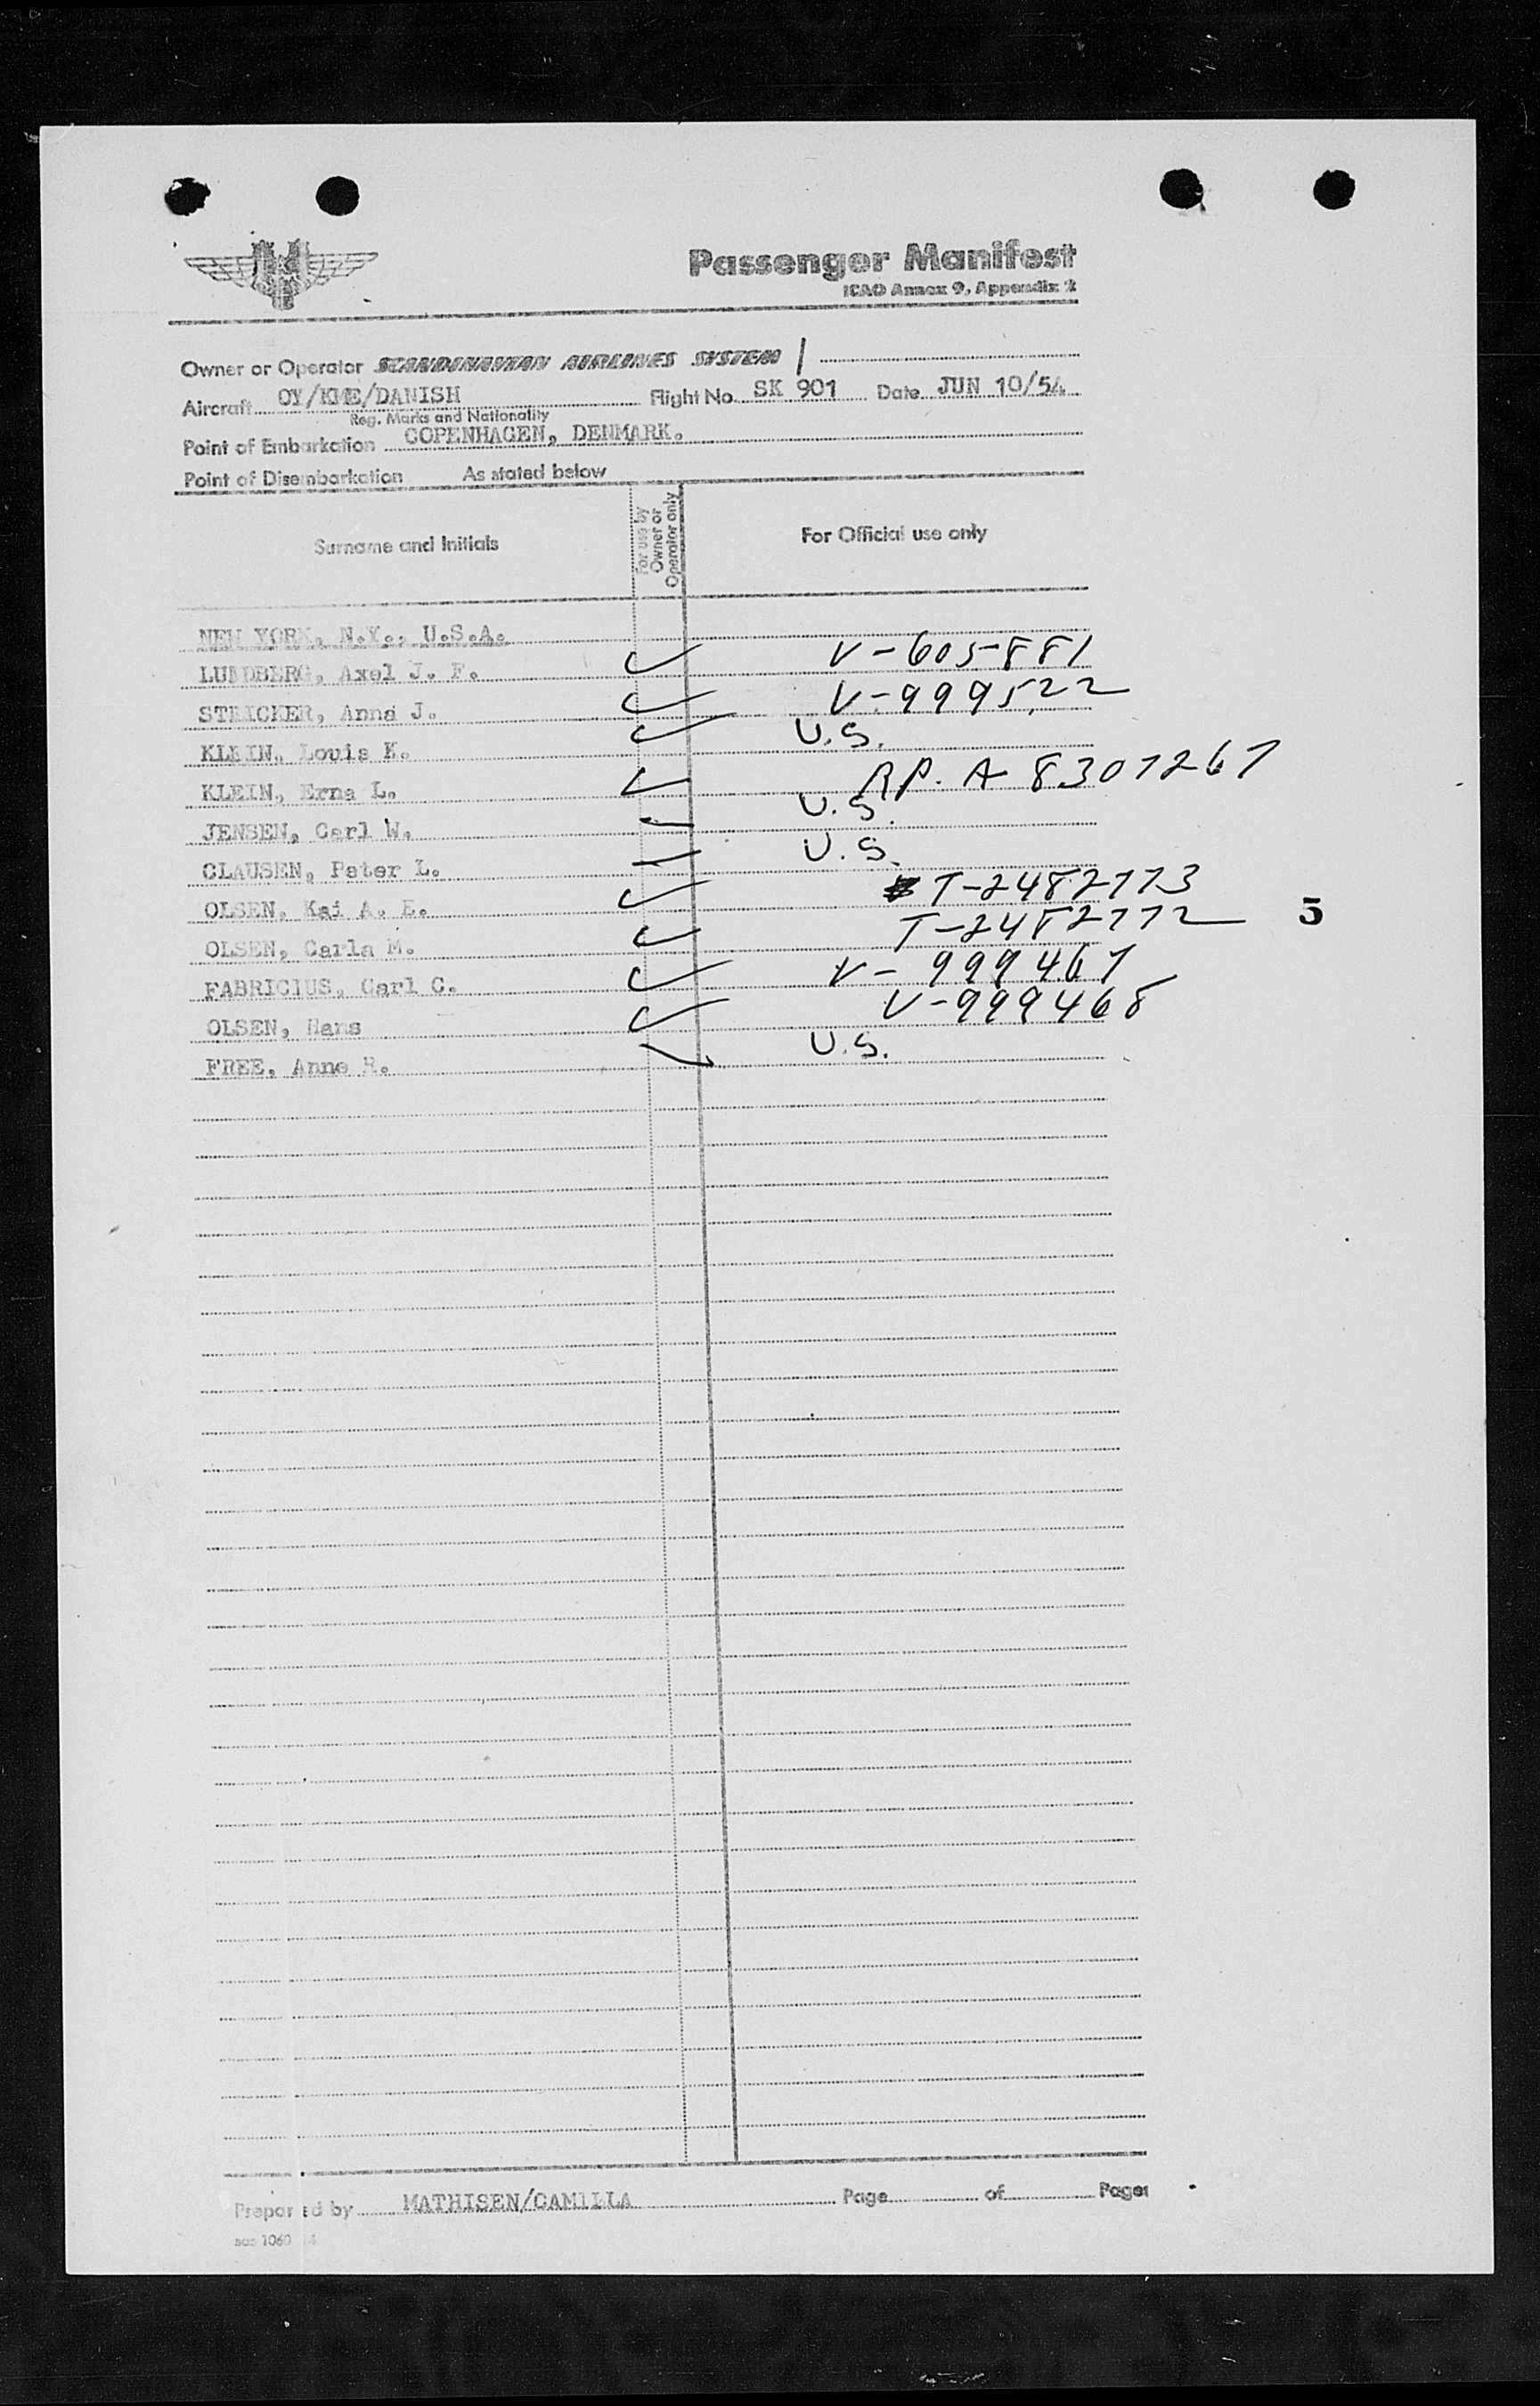 Passenger Manifest
ICAO Annex 9, Appendix 2
Owner or Operator SCANDINAVIAN AIRLINES SYSTEM /
Aircraft OY/KME/DANISH Flight No. SK 901 Date JUN 10/54
Reg. Marks and Nationality
Point of Embarkation COPENHAGEN, DENMARK.
Point of Disembarkation As stated below
Surname and Initials For use by Owner or Operator only For Official use only
NEW YORK, N.Y., U.S.A.
LUNDBERG, Axel J. F. ✓ V-605881
STRICKER, Anna J. ✓ V-999522
KLEIN, Louis K. ✓ U.S.
KLEIN, Erna L. ✓ RP. A 8307267
JENSEN, Carl W. U.S.
CLAUSEN, Peter L. U.S.
OLSEN, Kai A. E. ✓ T-2482773
OLSEN, Carla M. ✓ T-2482772
5
FABRICIUS, Carl C. ✓ V-999467
OLSEN, Hans ✓ V-999468
FREE, Anne R. U.S.
Prepared by MATHISEN/CAMILLA Page of Pages
sas 1060